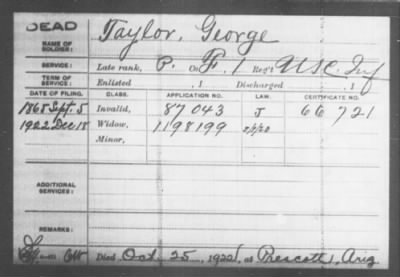 DEAD
NAME OF SOLDIER: Taylor, George
SERVICE: Late rank, P. Co F. 1 Reg't U S C. Inf
TERM OF SERVICE: Enlisted , 1 Discharged , 1
DATE OF FILING. CLASS. APPLICATION NO. LAW. CERTIFICATE NO.
1868 Sept. 5 Invalid, 87043 J 66721
1922 Dec 18 Widow, 1198199
Minor,
ADDITIONAL SERVICES:
REMARKS:
Died Oct. 25, 1922, at Prescott, Ariz